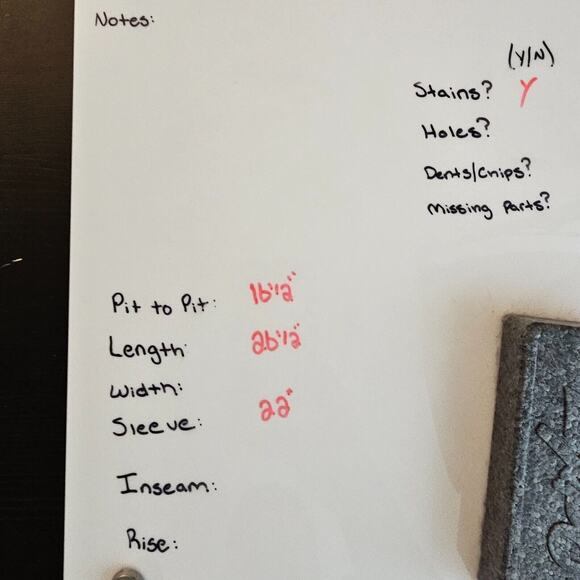 Notes:
(Y/N)
Stains? Y
Holes?
Dents/Chips?
Missing Parts?
Pit to Pit: 16 1/2"
Length: 26 1/2"
Width:
Sleeve: 22"
Inseam:
Rise: